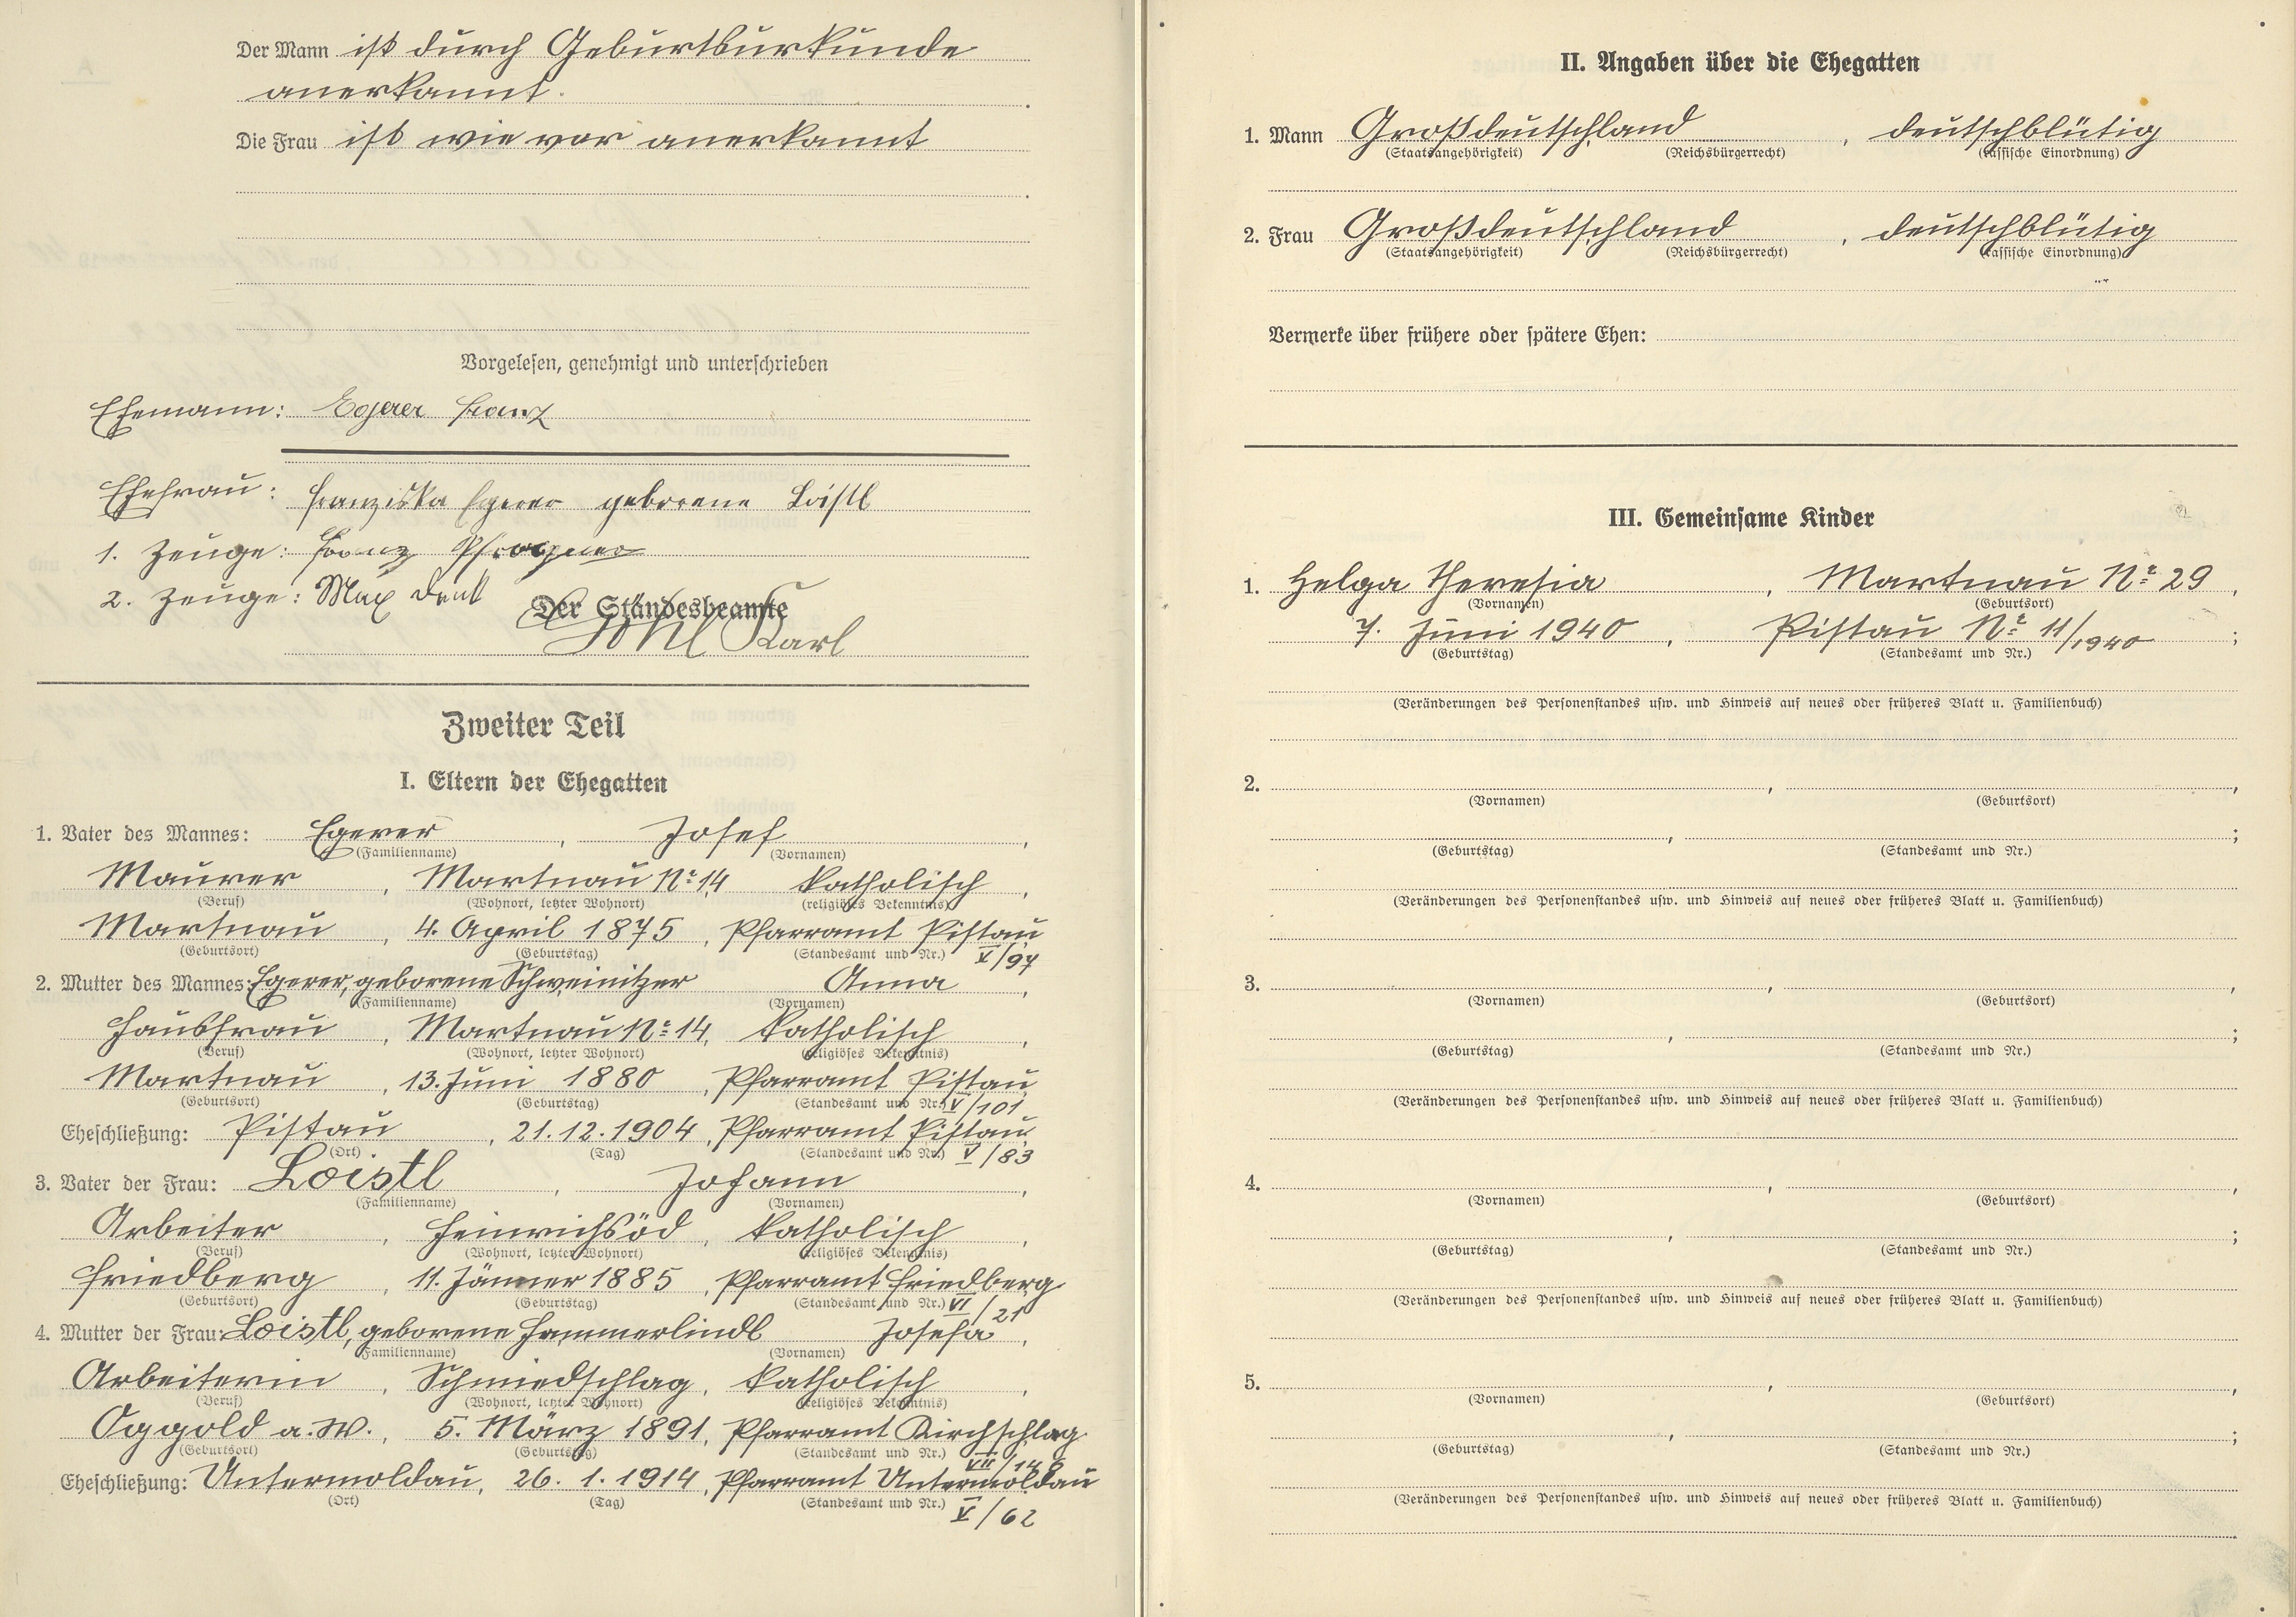 Der Mann ist durch Geburtsurkunde
anerkannt.
Die Frau ist wie vor anerkannt
Vorgelesen, genehmigt und unterschrieben
Ehemann: Egerer Franz
Ehefrau: Franziska Egerer geborene Loistl
1. Zeuge: Franz
2. Zeuge: Max
Der Standesbeamte
Karl
Zweiter Teil
I. Eltern der Ehegatten
1. Vater des Mannes: Egerer, Josef,
(Familienname) (Vornamen)
Maurer, Martnau Nr. 14 katholisch,
(Beruf) (Wohnort, letzter Wohnort) (religiöses Bekenntnis)
Martnau, 4. April 1875, Pfarramt Pistau
(Geburtsort) (Geburtstag) (Standesamt und Nr.) V/97
2. Mutter des Mannes: Egerer, geborene Schweinitzer Anna,
(Familienname) (Vornamen)
Hausfrau, Martnau Nr. 14, katholisch,
(Beruf) (Wohnort, letzter Wohnort) (religiöses Bekenntnis)
Martnau, 13. Juni 1880, Pfarramt Pistau,
(Geburtsort) (Geburtstag) (Standesamt und Nr.) V/101
Eheschließung: Pistau, 21.12.1904, Pfarramt Pistau
(Ort) (Tag) (Standesamt und Nr.) V/83
3. Vater der Frau: Loistl, Johann,
(Familienname) (Vornamen)
Arbeiter, Heinrichsöd, katholisch,
(Beruf) (Wohnort, letzter Wohnort) (religiöses Bekenntnis)
Friedberg, 11. Jänner 1885, Pfarramt Friedberg
(Geburtsort) (Geburtstag) (Standesamt und Nr.) VI/21
4. Mutter der Frau: Loistl, geborene Hammerlindl Josefa,
(Familienname) (Vornamen)
Arbeiterin, Schmiedschlag, katholisch,
(Beruf) (Wohnort, letzter Wohnort) (religiöses Bekenntnis)
Oggold a. W., 5. März 1891, Pfarramt Kirchschlag
(Geburtsort) (Geburtstag) (Standesamt und Nr.)
Eheschließung: Untermoldau, 26. 1. 1914, Pfarramt Untermoldau
(Ort) (Tag) (Standesamt und Nr.) V/62
II. Angaben über die Ehegatten
1. Mann Großdeutschland, deutschblütig
(Staatsangehörigkeit) (Reichsbürgerrecht) (rassische Einordnung)
2. Frau Großdeutschland, deutschblütig
(Staatsangehörigkeit) (Reichsbürgerrecht) (rassische Einordnung)
Vermerke über frühere oder spätere Ehen:
III. Gemeinsame Kinder
1. Helga Theresia, Martnau Nr. 29,
(Vornamen) (Geburtsort)
7. Juni 1940, Pistau Nr. 11/1940;
(Geburtstag) (Standesamt und Nr.)
(Veränderungen des Personenstandes usw. und Hinweis auf neues oder früheres Blatt u. Familienbuch)
2. , ,
(Vornamen) (Geburtsort)
, ;
(Geburtstag) (Standesamt und Nr.)
(Veränderungen des Personenstandes usw. und Hinweis auf neues oder früheres Blatt u. Familienbuch)
3. , ,
(Vornamen) (Geburtsort)
, ;
(Geburtstag) (Standesamt und Nr.)
(Veränderungen des Personenstandes usw. und Hinweis auf neues oder früheres Blatt u. Familienbuch)
4. , ,
(Vornamen) (Geburtsort)
, ;
(Geburtstag) (Standesamt und Nr.)
(Veränderungen des Personenstandes usw. und Hinweis auf neues oder früheres Blatt u. Familienbuch)
5. , ,
(Vornamen) (Geburtsort)
, ;
(Geburtstag) (Standesamt und Nr.)
(Veränderungen des Personenstandes usw. und Hinweis auf neues oder früheres Blatt u. Familienbuch)